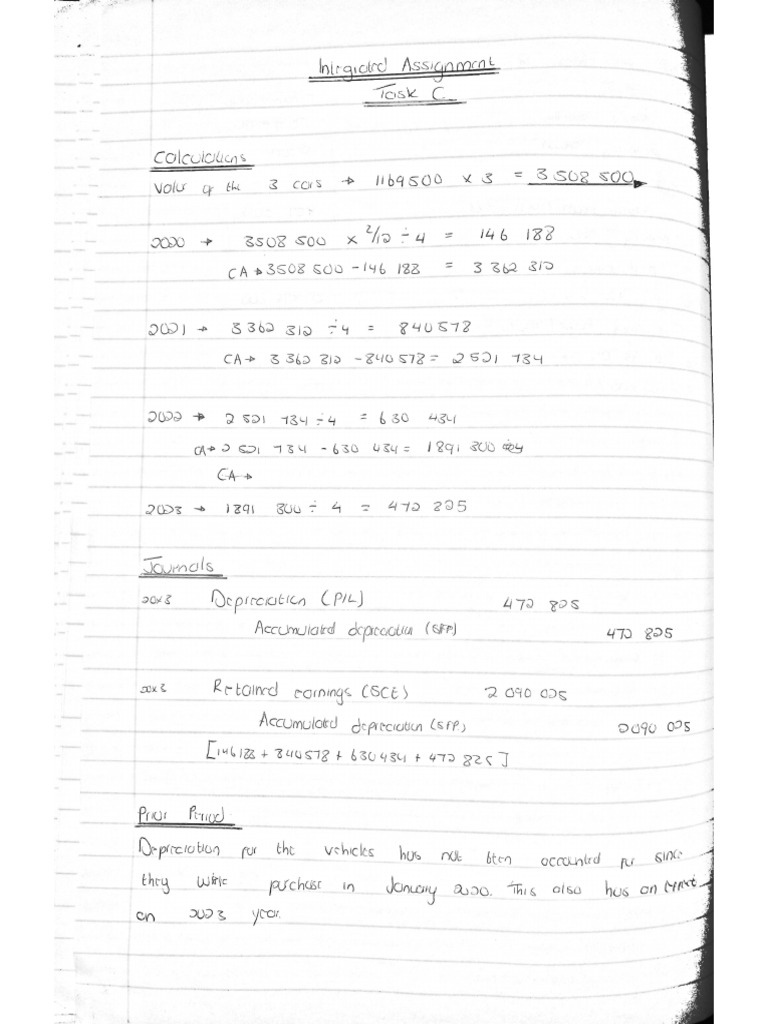 Integrated Assignment
Task C
Calculations
Value of the 3 cars → 1169500 x 3 = 3 508 500
2020 → 3508 500 x 2/12 ÷ 4 = 146 188
CA → 3508 500 - 146 188 = 3 362 312
2021 → 3 362 312 ÷ 4 = 840578
CA → 3 362 312 - 840 578 = 2 521 734
2022 → 2 521 734 ÷ 4 = 630 434
CA → 2 521 734 - 630 434 = 1891 300
CA →
2023 → 1891 300 ÷ 4 = 472 825
Journals
20x3 Depreciation (P/L) 472 825
Accumulated depreciation (SFP) 472 825
20x3 Retained earnings (SCE) 2 090 025
Accumulated depreciation (SFP) 2090 025
[146188 + 840578 + 630434 + 472 825]
Prior Period
Depreciation for the vehicles has not been accounted for since
they were purchase in January 2020. This also has an
on 2023 year.